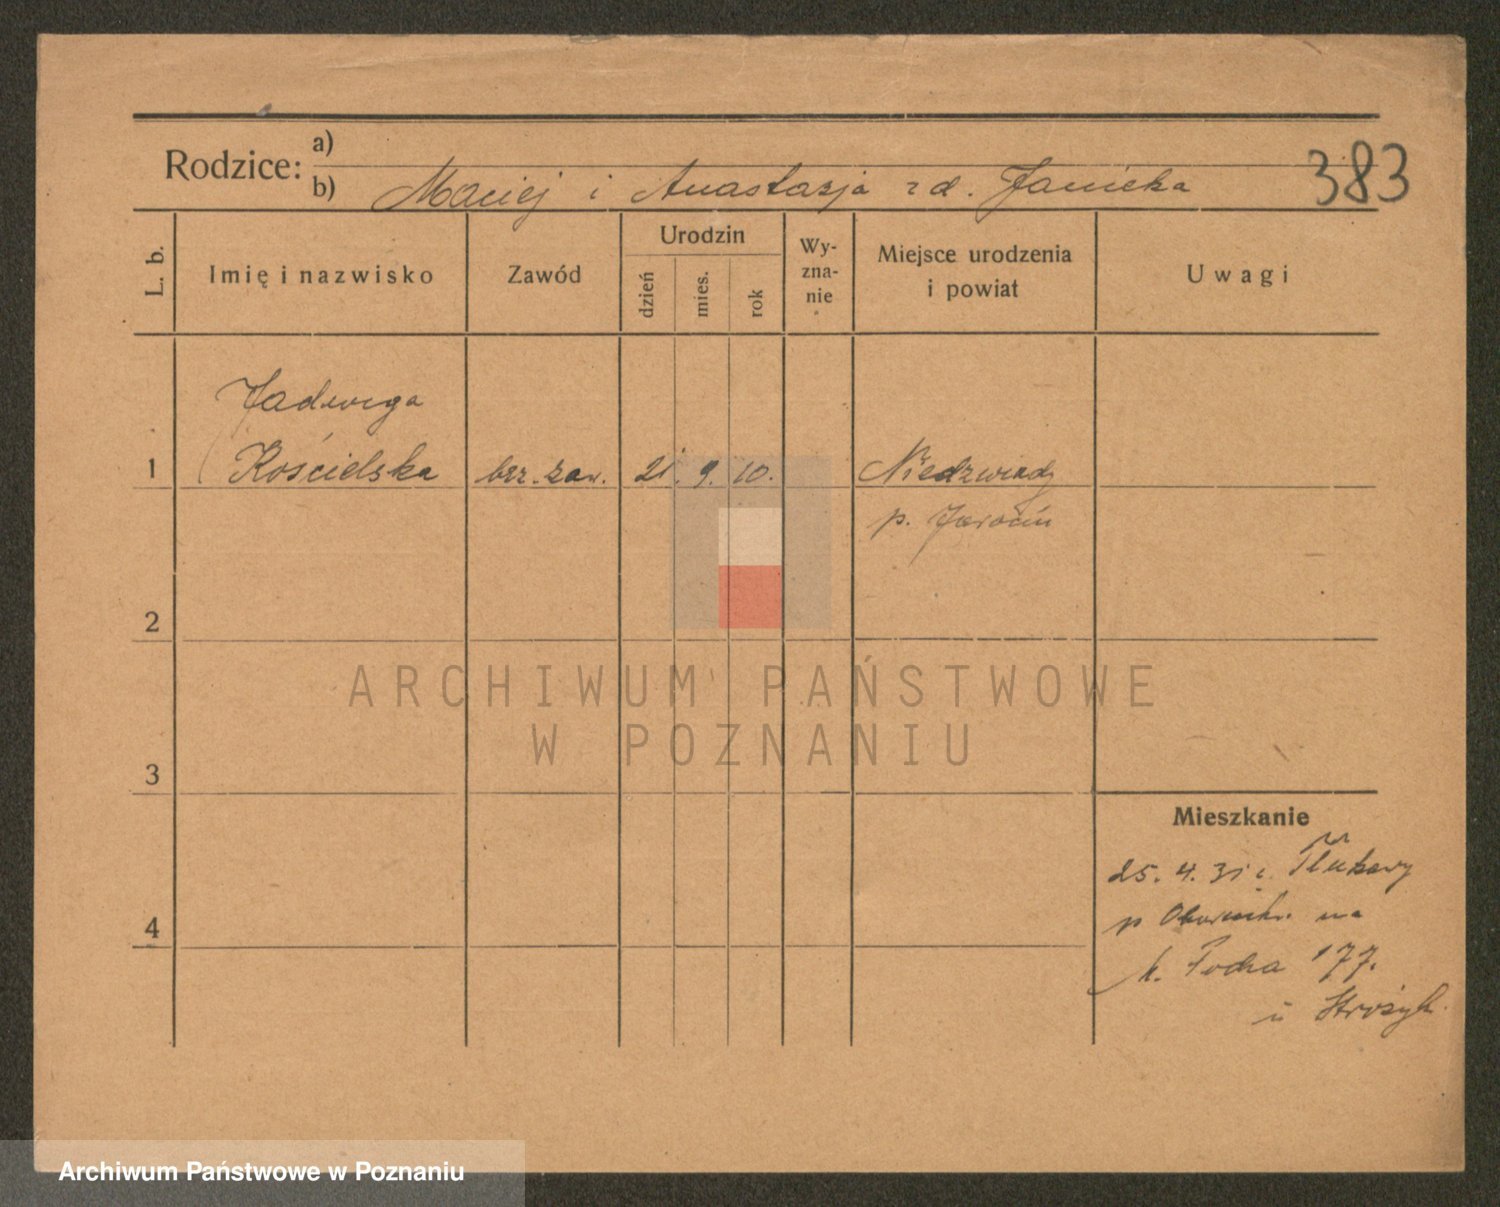 Rodzice: a)
b) Maciej i Anastazja zd. Janicka
383
L. b.
Imię i nazwisko
Zawód
Urodzin
dzień
mies.
rok
Wy-
zna-
nie
Miejsce urodzenia
i powiat
Uwagi
Jadwiga
1 Kościelska bez. zaw. 21. 9. 10. Niedzwiady
p. Jarocin
2
3
4
Mieszkanie
25. 4. 31 z Tłukawy
p Obornik. na
Focha 177.
u Stróżyk.
ARCHIWUM PAŃSTWOWE
W POZNANIU
Archiwum Państwowe w Poznaniu